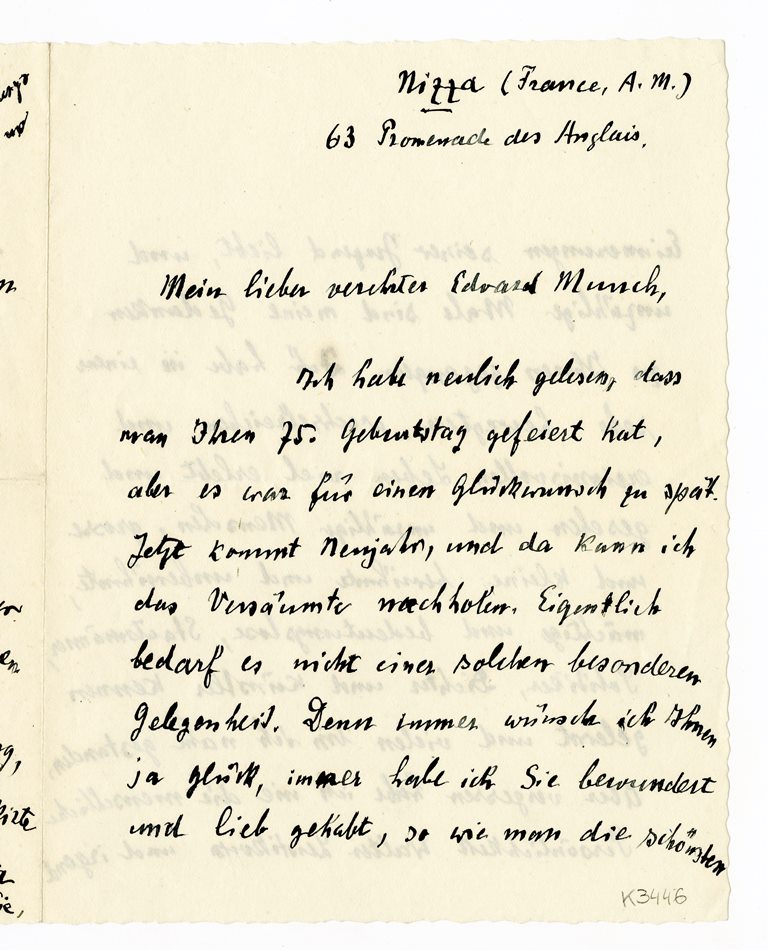 Nizza (France, A. M.)
63 Promenade des Anglais.
Mein lieber verehrter Edvard Munch,
Ich habe neulich gelesen, dass
man Ihren 75. Geburtstag gefeiert hat,
aber es war für einen Glückwunsch zu spät.
Jetzt kommt Neujahr, und da kann ich
das Versäumte nachholen. Eigentlich
bedarf es nicht einer solchen besonderen
Gelegenheit. Denn immer wünsche ich Ihnen
ja Glück, immer habe ich Sie bewundert
und lieb gehabt, so wie man die schönsten
K3446